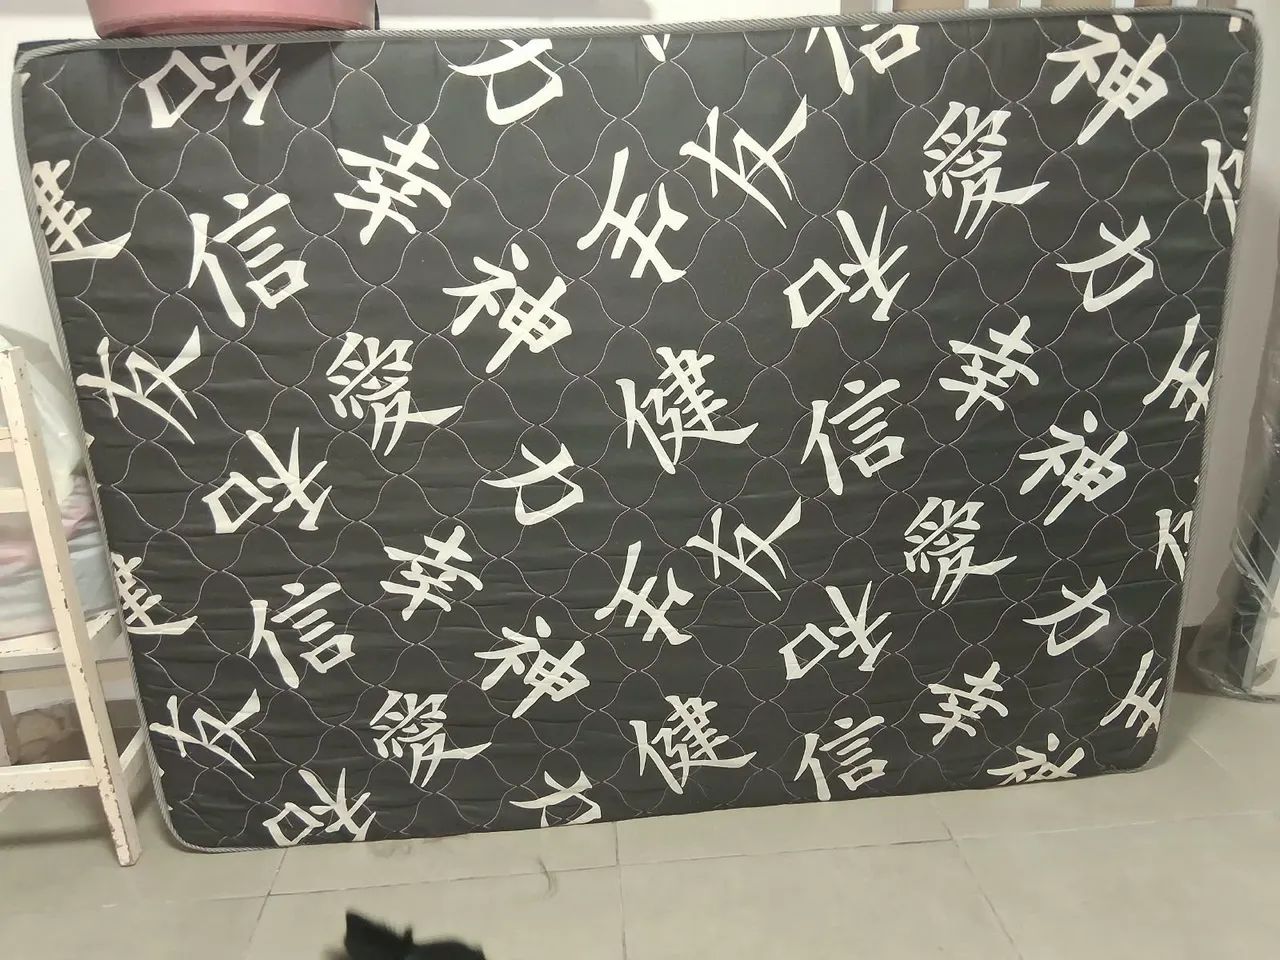 和 力 信 神
健 信 幸 友 愛
神 和 力
友 愛 健 信 幸 神
和 力 友 愛
健 信 幸 和 力
友 愛 神 健 信 幸
和 力 神